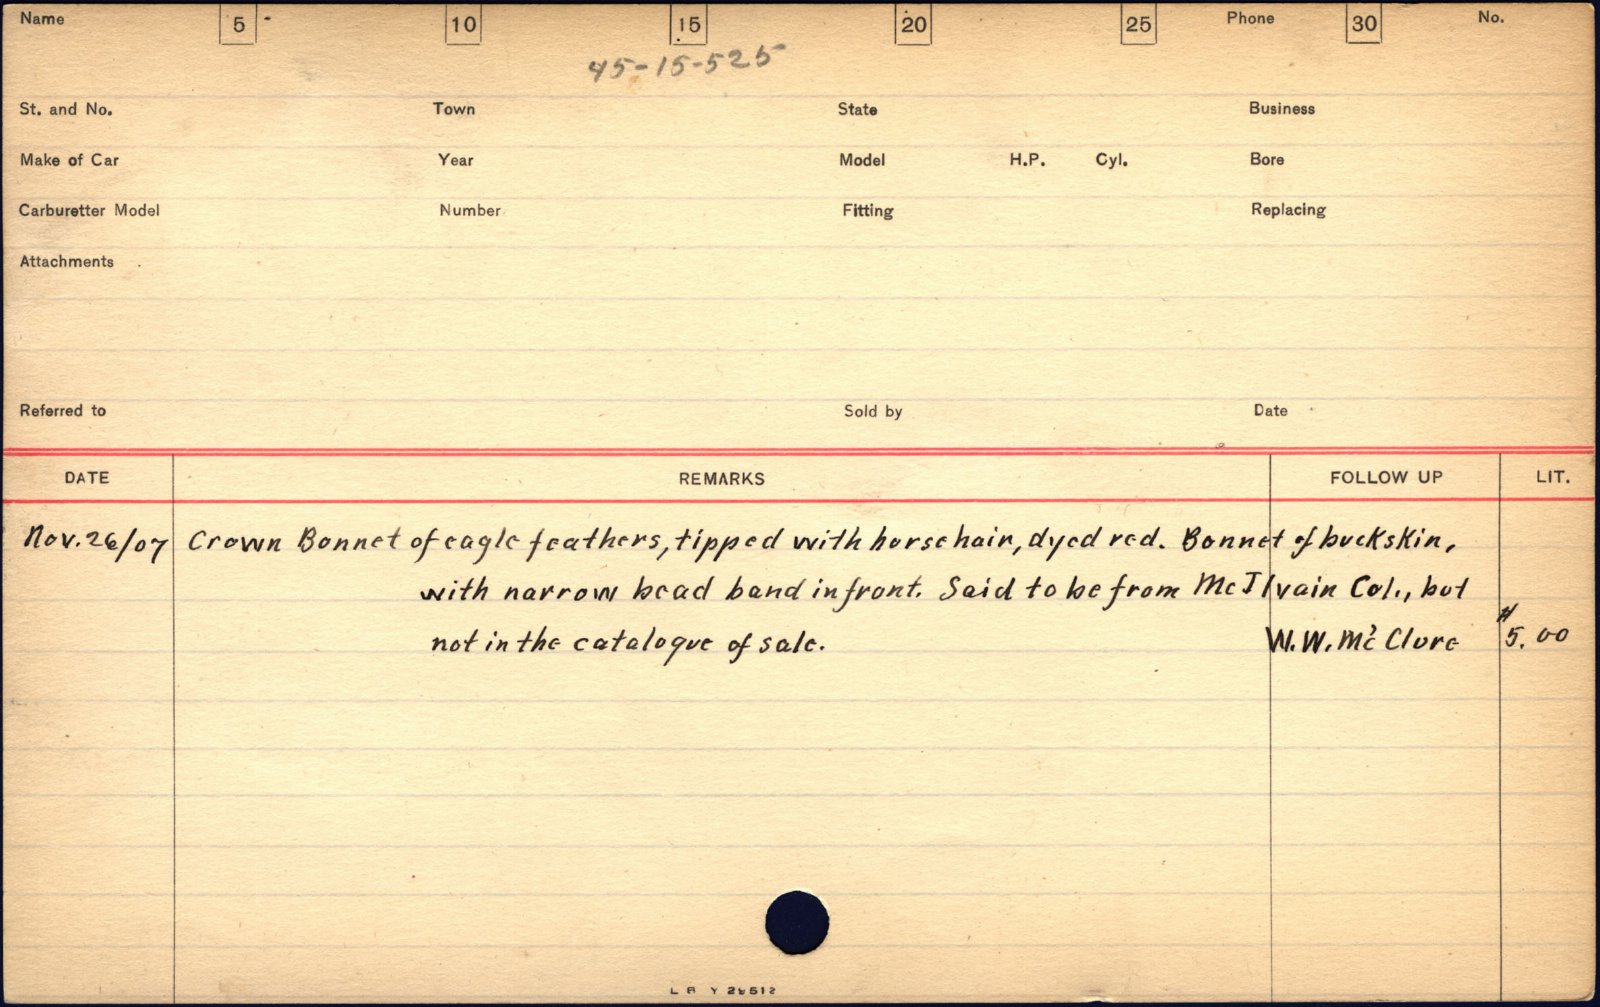 Name 5 10 15 20 25 Phone 30 No.
45-15-525
St. and No. Town State Business
Make of Car Year Model H.P. Cyl. Bore
Carburetter Model Number Fitting Replacing
Attachments
Referred to Sold by Date
DATE REMARKS FOLLOW UP LIT.
Nov. 26/07 Crown Bonnet of eagle feathers, tipped with horsehair, dyed red. Bonnet of buckskin,
with narrow bead band in front. Said to be from McIlvain Col., but
not in the catalogue of sale. W. W. McClure $5.00
L B Y 29512